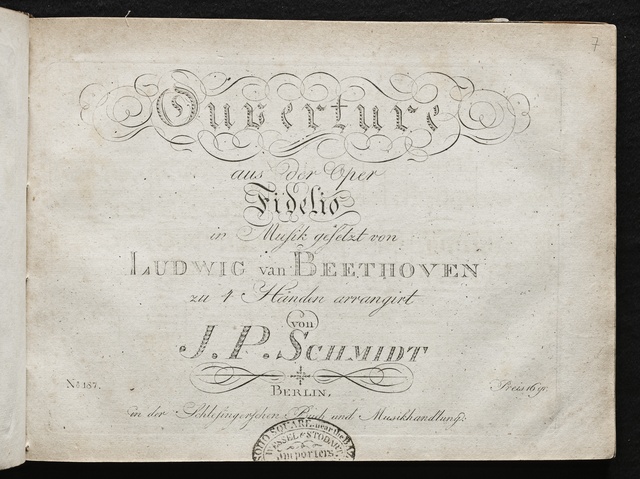 7
Ouverture
aus der Oper
Fidelio
in Musik gesetzt von
LUDWIG van BEETHOVEN
zu 4 Händen arrangirt
von
J. P. SCHMIDT
No. 187.
Preis 16 gr.
BERLIN,
in der Schlesingerschen Buch und Musikhandlung.
SOHO SQUARE,
WESSEL & STODART
Importers.